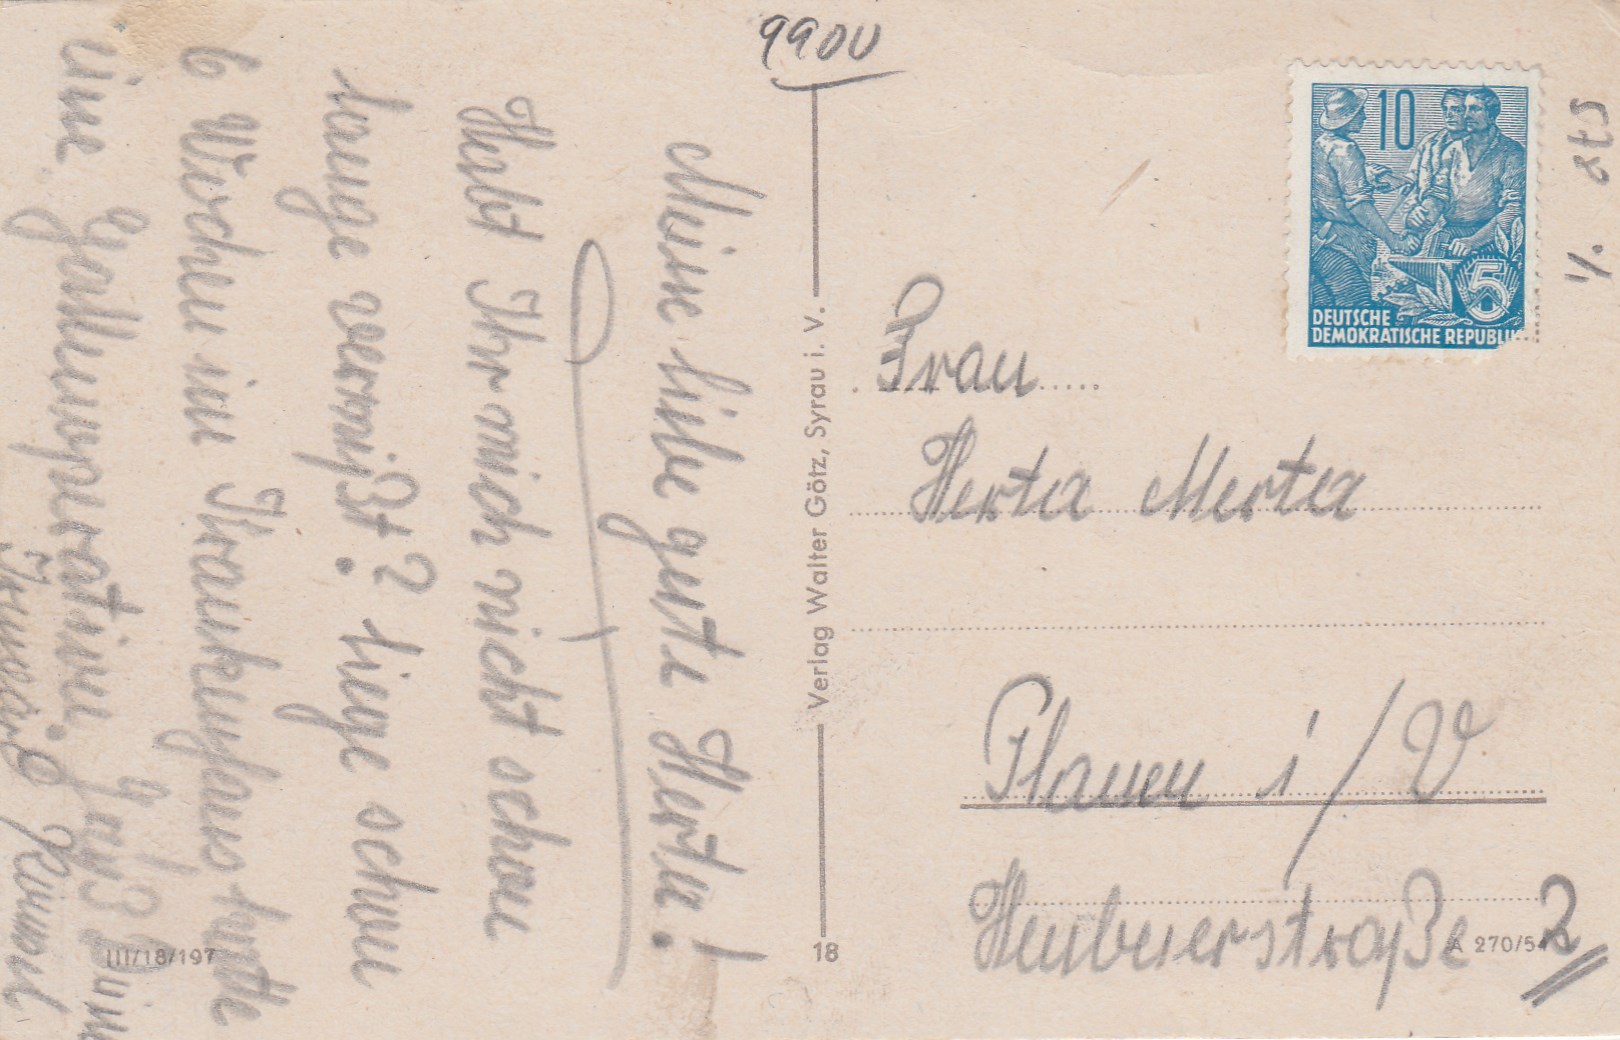 9900
Meine liebe gute Herta!
Habt Ihr mich nicht schon
lange vermißt? Liege schon
6 Wochen im Krankenhaus hatte
eine Gallenoperation. Gruß
Verlag Walter Götz, Syrau i. V.
18
III/18/197
A 270/54
10
5
DEUTSCHE
DEMOKRATISCHE REPUBLIK
Frau
Herta Merta
Plauen i/V
Heubnerstraße 2